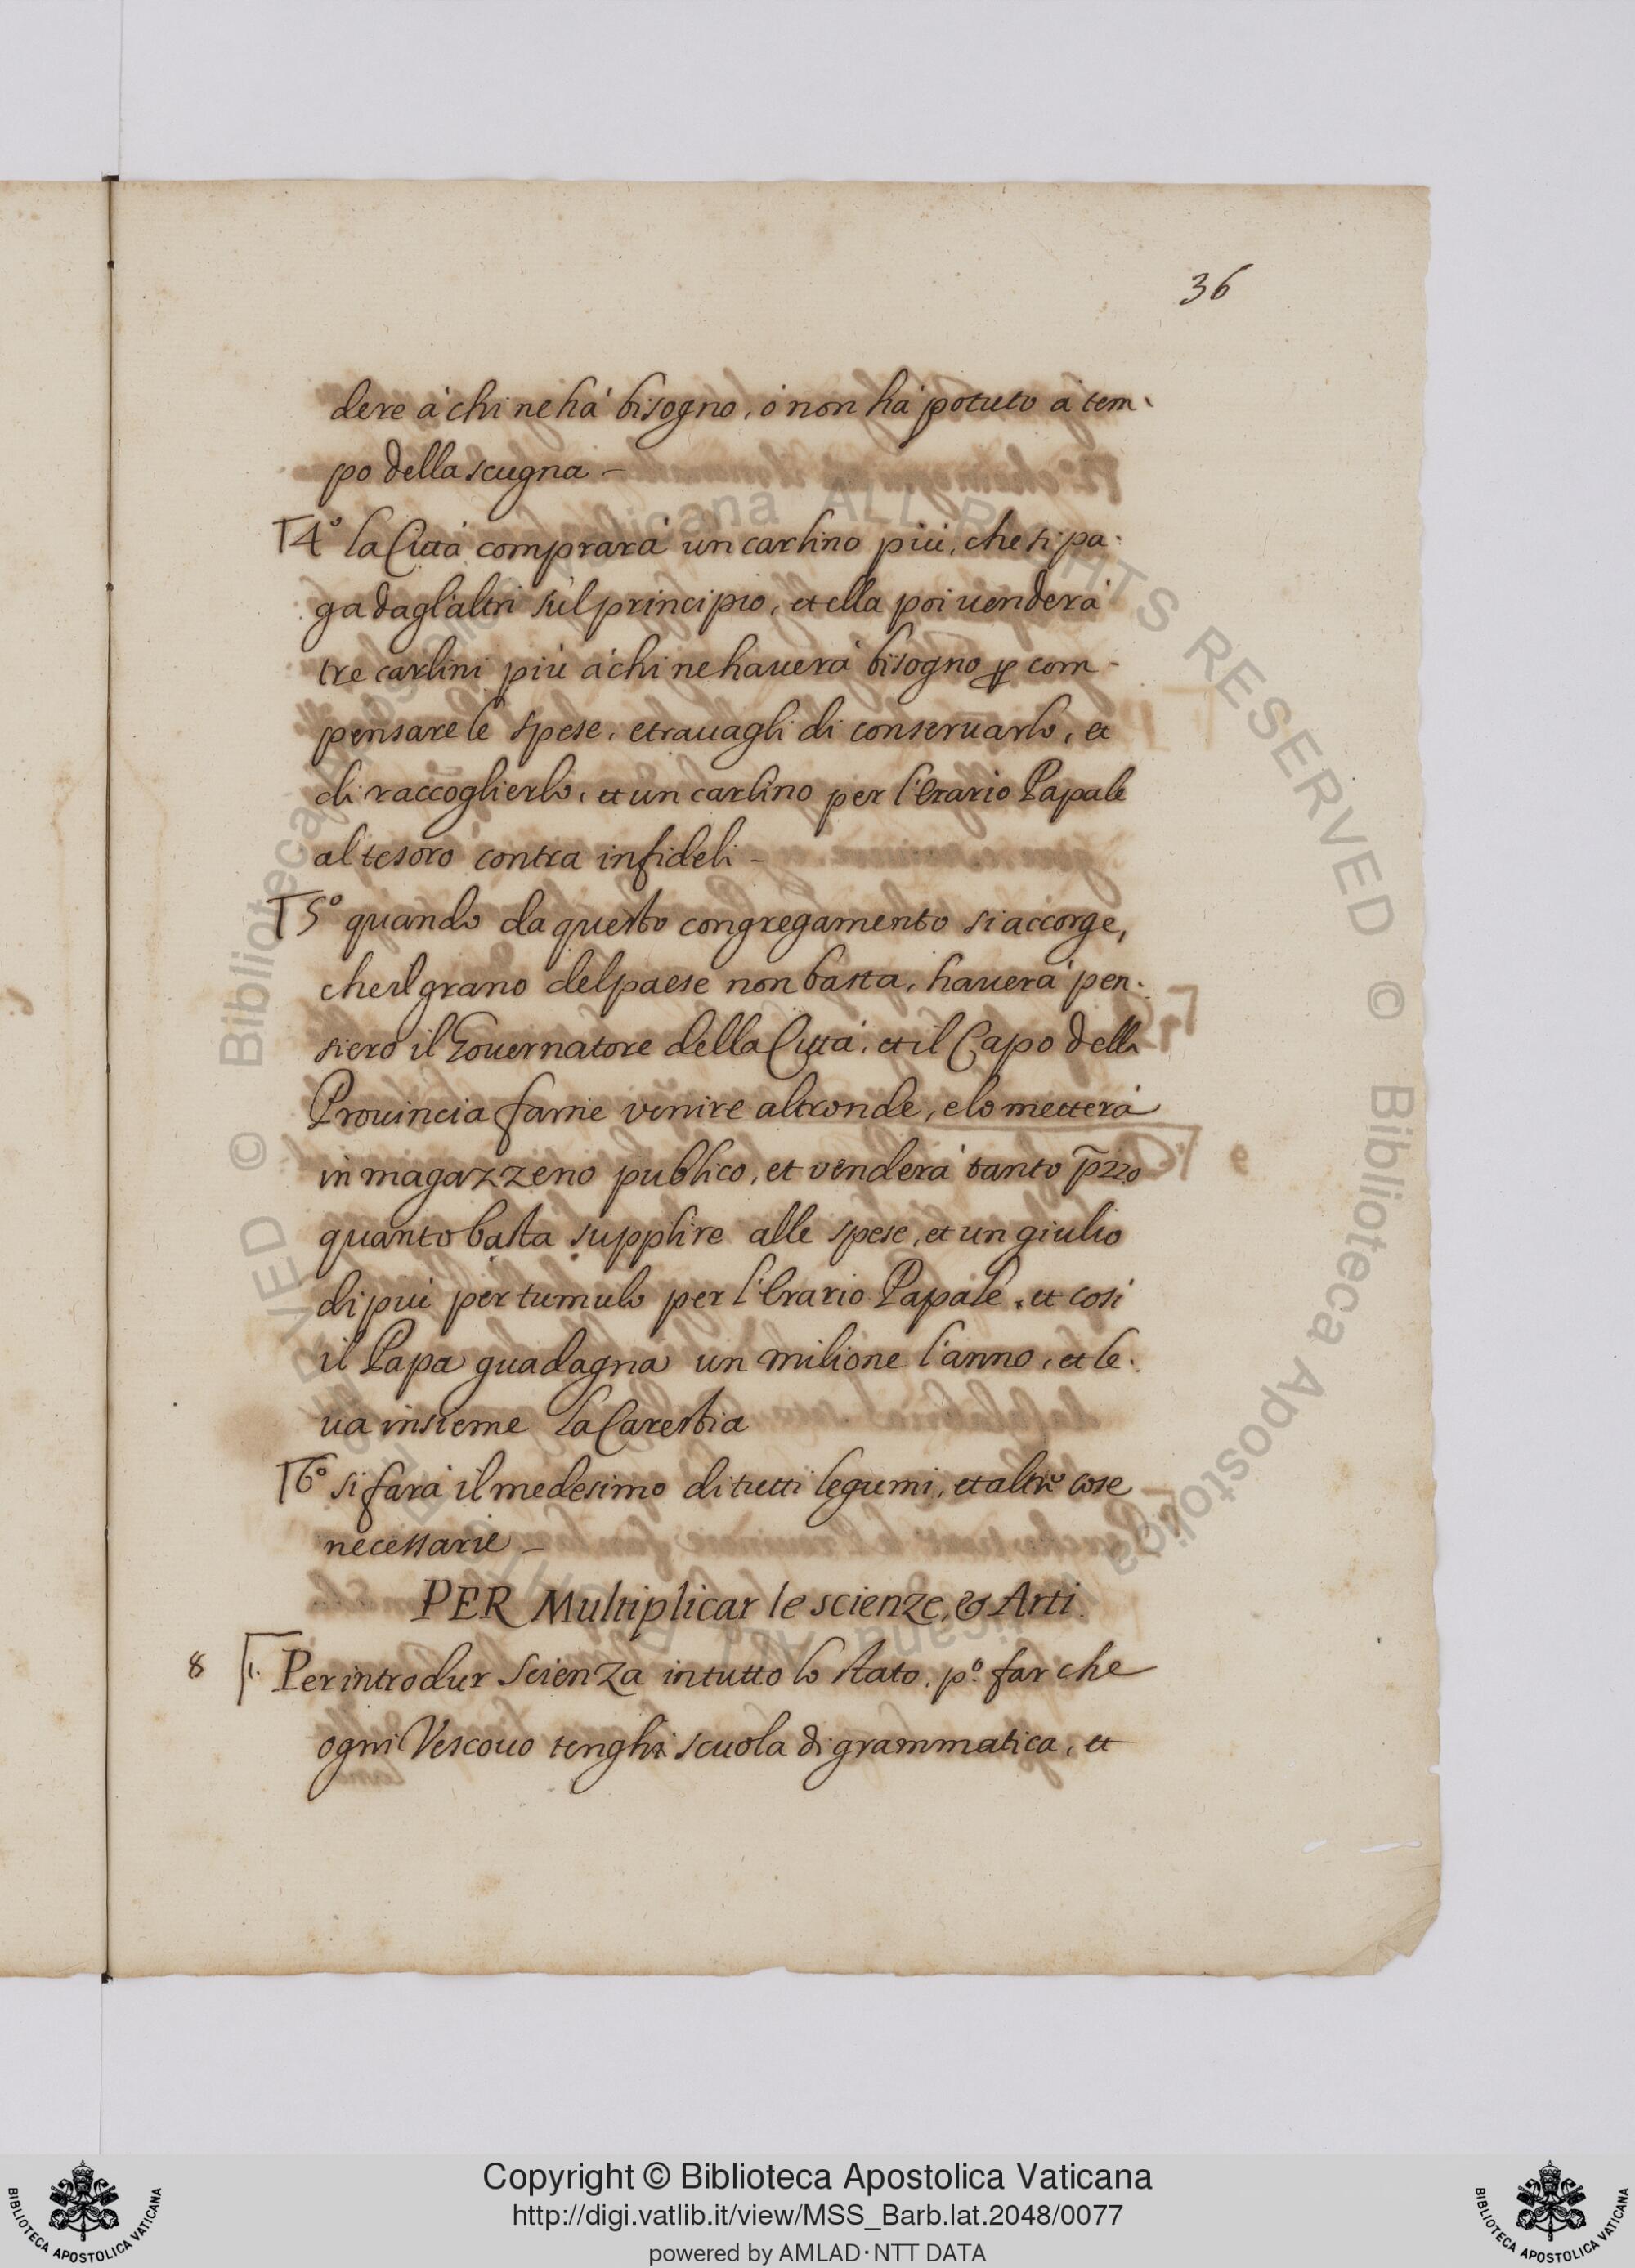 36
dere à chi ne hà bisogno, ò non hà potuto à tem-
po della scugna –
4º la Città comprarà un carlino più, che si pa-
ga dagl'altri sùl principio, et ella poi uenderà
tre carlini più à chi ne hauerà bisogno ꝑ com-
pensare le spese, e trauagli di conseruarlo, et
di raccoglierlo, et un carlino per l'Erario Papale
al tesoro contra infideli –
5º quando da questo congregamento si accorge,
che il grano del paese non basta, hauerà pen-
siero il Gouernatore della Città, et il Capo della
Prouincia farne venire altronde, e lo metterà
in magazzeno publico, et venderà tanto p̃zzo
quanto basta supplire alle spese, et un giulio
di più per tumulo per l'Erario Papale, et così
il Papa guadagna un milione l'anno, et le-
ua insieme la Carestia
6º si farà il medesimo di tutti legumi, et altre cose
necessarie –
PER Multiplicar le scienze, & Arti.
8 1. Per introdur Scienza in tutto lo stato, pº. far che
ogni Vescouo tenghi scuola di grammatica, et
© Biblioteca Apostolica Vaticana ALL RIGHTS RESERVED © Biblioteca Apostolica Vaticana ALL RIGHTS RESERVED
Copyright © Biblioteca Apostolica Vaticana
http://digi.vatlib.it/view/MSS_Barb.lat.2048/0077
powered by AMLAD·NTT DATA
BIBLIOTECA APOSTOLICA VATICANA
BIBLIOTECA APOSTOLICA VATICANA